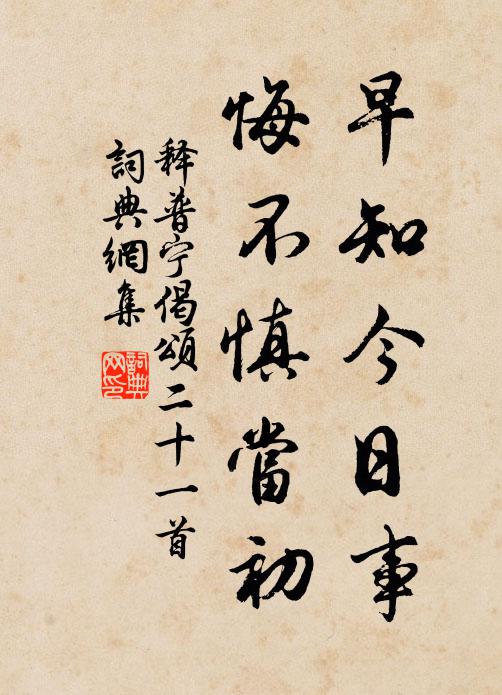 早知今日事
悔不慎當初
释普宁偈頌二十一首
詞典網集
詞典网印